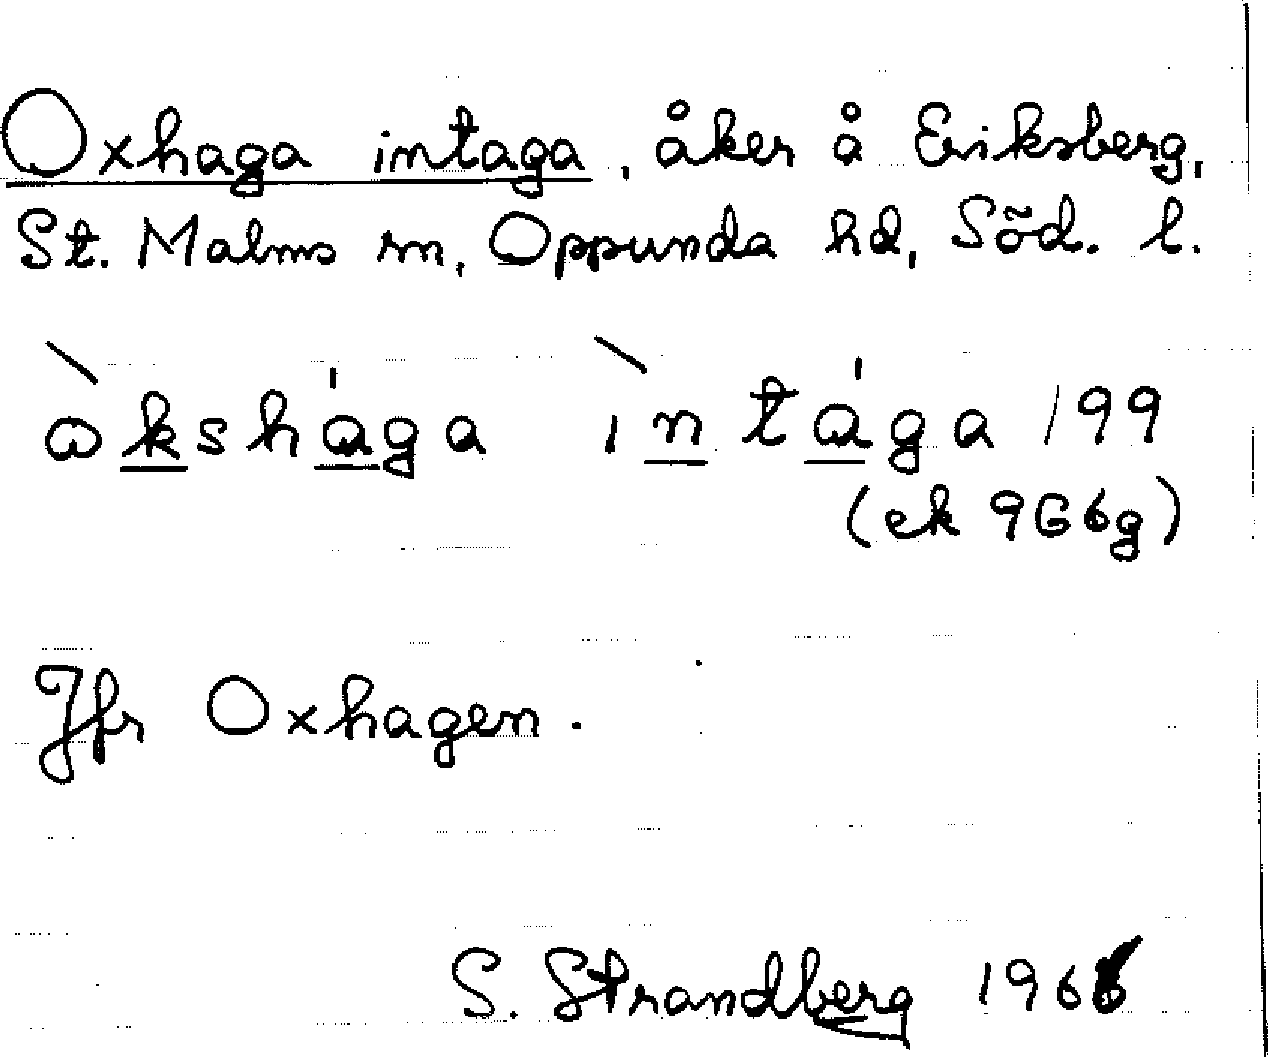 Oxhaga intaga, åker å Eriksberg,
St. Malms sn, Oppunda hd, Söd. l.
ɷ̀kshága ìntága 199
(ek 9G6g)
Jfr Oxhagen.
S. Strandberg 1966